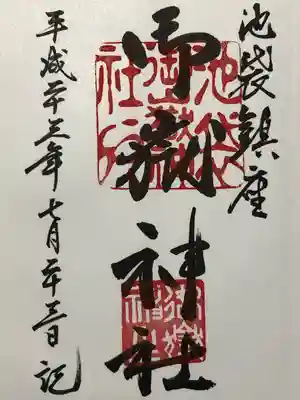 池袋鎮座
御嶽神社
平成二十三年七月二十三日記
池袋
御嶽
御嶽
神社